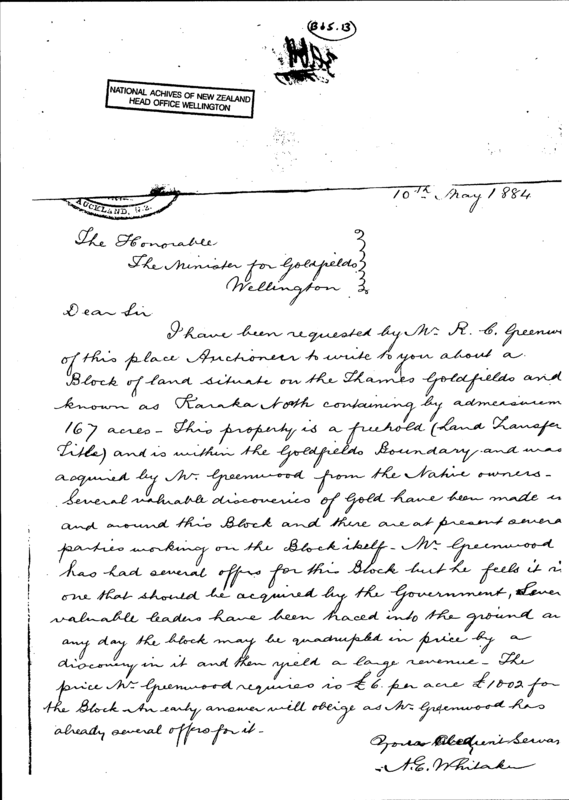 B65.B
NATIONAL ACHIVES OF NEW ZEALAND
HEAD OFFICE WELLINGTON
AUCKLAND, N.Z.
10th May 1884
The Honorable
The Minister for Goldfields
Wellington
Dear Sir
I have been requested by Mr. R. C. Greenw
of this place Auctioneer to write to you about a
Block of land situate on the Thames Goldfields and
known as Karaka North containing by admeasurem
167 acres - This property is a freehold (Land Transfer
Title) and is within the Goldfields Boundary and was
acquired by Mr. Greenwood from the Native owners -
Several valuable discoveries of Gold have been made i
and around this Block and there are at present severa
parties working on the Block itself - Mr Greenwood
has had several offers for this Block but he feels it i
one that should be acquired by the Government, Sever
valuable leaders have been traced into the ground an
any day the block may be quadrupled in price by a
discovery in it and then yield a large revenue - The
price Mr Greenwood requires is £6. per acre £1002 for
the Block - An early answer will oblige as Mr Greenwood has
already several offers for it -
Yours Obedient Servan
A. E. Whitaker